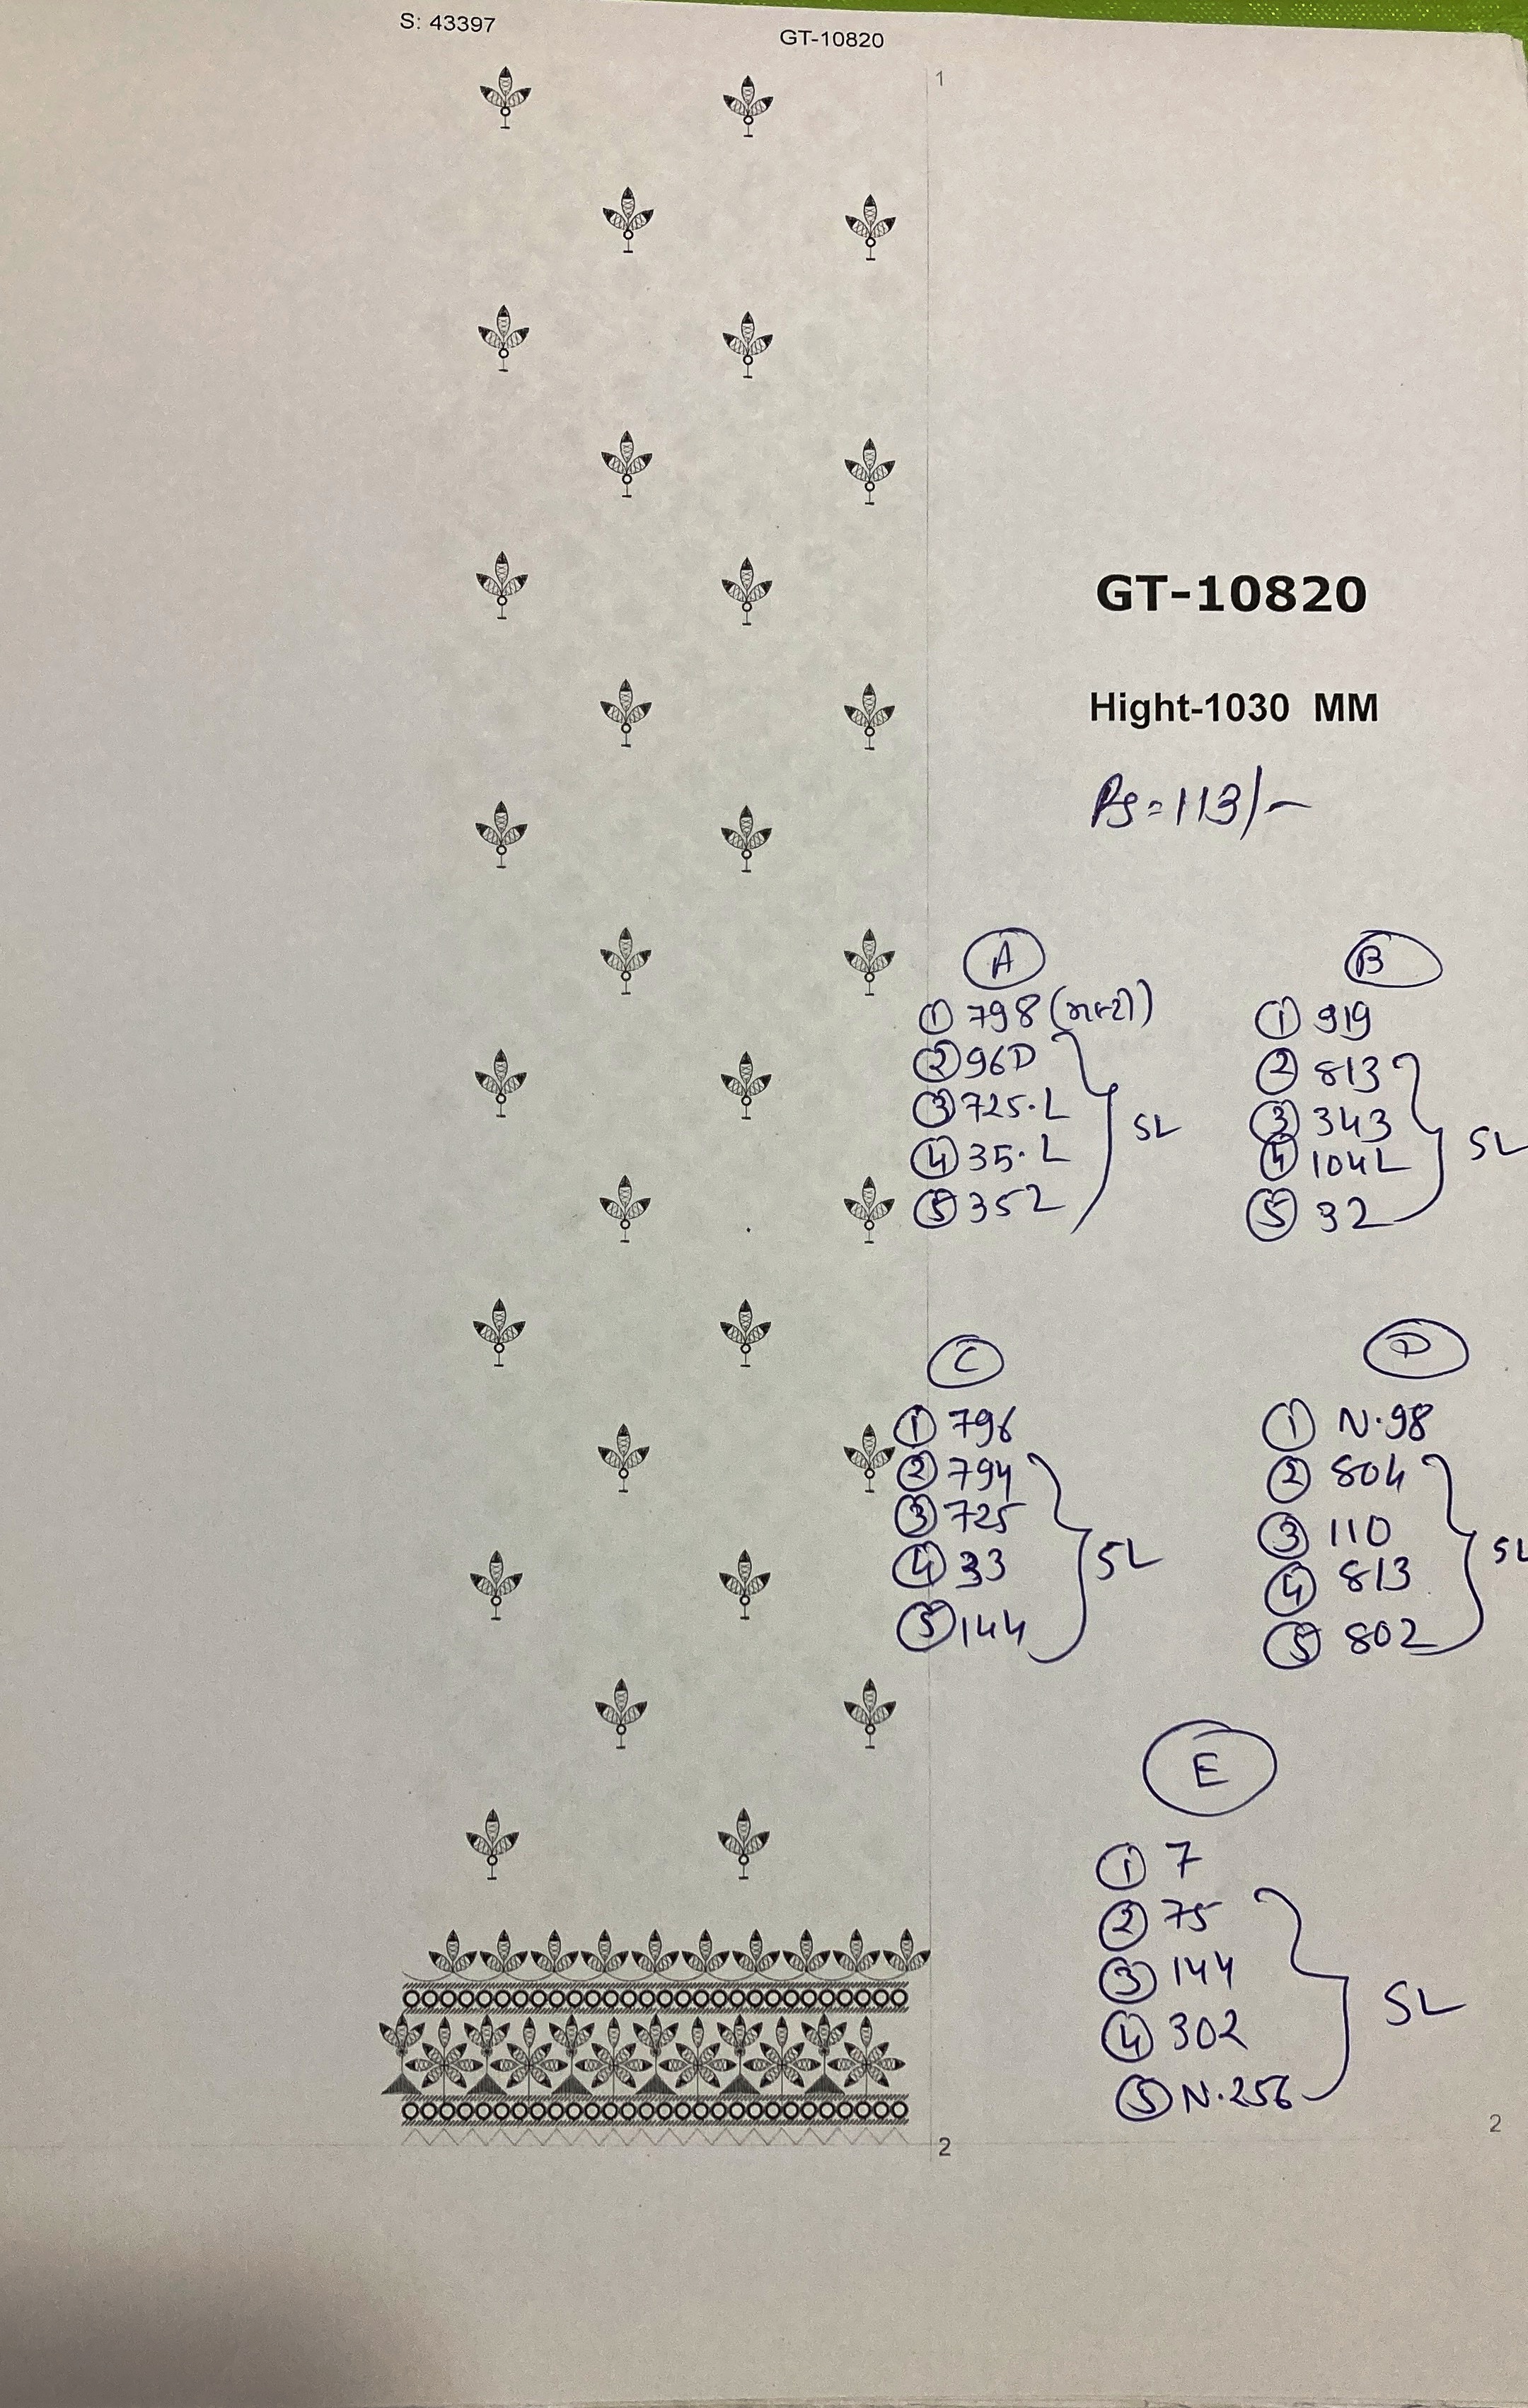 S: 43397
GT-10820
1
GT-10820
Hight-1030 MM
Rs=113/-
A
① 798
② 96D
③ 725.L
④ 35.L
⑤ 352
SL
B
① 919
② 813
③ 343
④ 104L
⑤ 32
SL
C
① 796
② 794
③ 725
④ 33
⑤ 144
SL
D
① N.98
② 804
③ 110
④ 813
⑤ 802
SL
E
① 7
② 75
③ 144
④ 302
⑤ N.256
SL
2
2